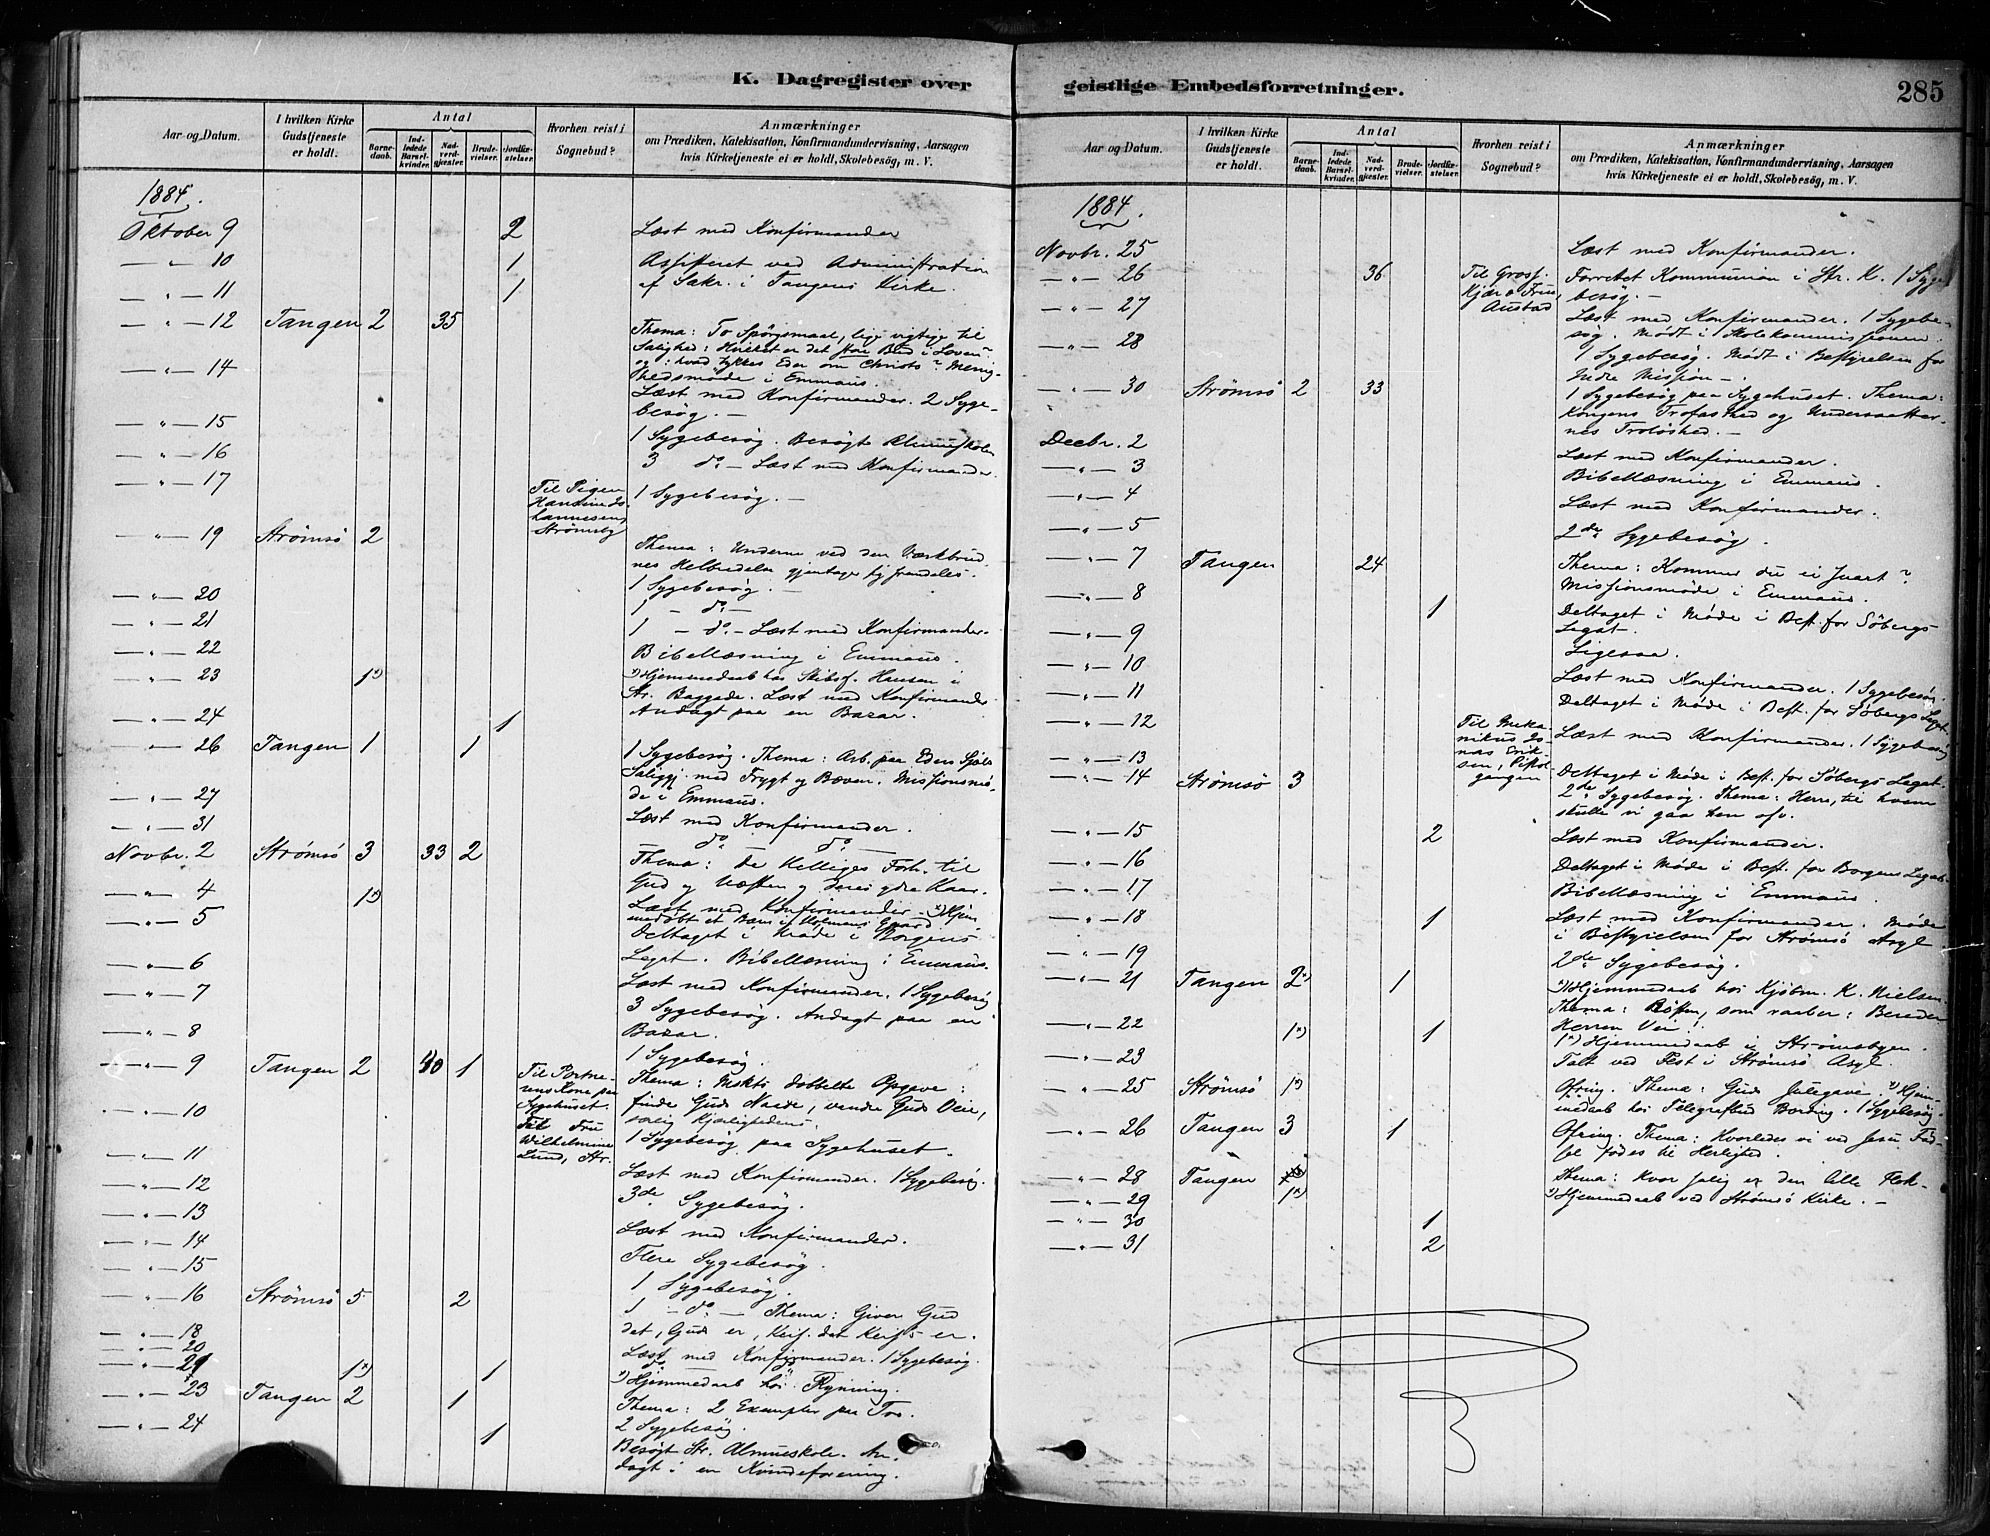 K. Dagregister over
geistlige Embedsforretninger.
285
Aar og Datum.
I hvilken Kirke
Gudstjeneste
er holdt.
Antal
Barne-
daab.
Ind-
ledede
Barsel-
kvinder.
Nad-
verd-
gjester.
Brude-
vielser.
Jordfæ-
stelser.
Hvorhen reist i
Sognebud?
Anmærkninger
om Prædiken, Katekisation, Konfirmandundervisning, Aarsagen
hvis Kirketjeneste ei er holdt, Skolebesøg, m. V.
1884.
Oktober 9 2 Læst med Konfirmander
— " — 10 1 Assisteret ved Administration
— " — 11 1 af Sakr. i Tangens Kirke.
— " — 12 Tangen 2 35
Thema: To Spørgsmaal, lige vigtige til
Salighed: Hvilket er det store Bud i Loven?
og: hvad tykkes Eder om Christo? Menig-
— " — 14 hedsmøde i Emmaus.
Læst med Konfirmander. 2 Syge-
besøg. —
— " — 15 1 Sygebesøg. Besøgt
— " — 16 3 do — Læst med Konfirmander
— " — 17 Til Pigen 1 Sygebesøg. —
Strømsø
— " — 19 Strømsø 2
Thema: Underne ved den Værkbrud-
nes Helbredelse gjentage sig fremdeles.
1 Sygebesøg. —
— " — 20 1 — do —
— " — 21 1 — do — Læst med Konfirmander.
— " — 22 Bibellæsning i Emmaus.
— " — 23 1*) *) Hjemmedaab hos Skibsf. Hansen i
Str. Baggade. Læst med Konfirmander
— " — 24 1 Andagt paa en Bazar.
— " — 26 Tangen 1 1
1 Sygebesøg. Thema: Arb. paa Eders Sjæls
Saliggj. med Frygt og Bæven. Missionsmø-
— " — 27 de i Emmaus.
— " — 31 Læst med Konfirmander.
Novbr. 2 Strømsø 3 33 2 do — do —
Thema: De Helliges Forh. til
Gud og Næsten og deres ydre Kaar.
— " — 4 1*) Læst med Konfirmander *) Hjem
— " — 5
Deltaget i Møde i Borgens
— " — 6 Legat. Bibellæsning i Emmaus.
— " — 7 Læst med Konfirmander. 1 Sygebesøg
3 Sygebesøg. Andagt paa en
— " — 8 Bazar.
1 Sygebesøg.
— " — 9 Tangen 2 40 1 Thema: Vor dobbelte Opgave:
Sygehuset. finde Guds Naade, vandre Guds Veie,
— " — 10 Til Fru særlig Kjærlighedens.
— " — 11 Wilhelmine 1 Sygebesøg paa Sygehuset.
Lund, Str.
— " — 12 Læst med Konfirmander. 1 Sygebesøg.
— " — 13 3de Sygebesøg.
— " — 14 Læst med Konfirmander.
— " — 15 Flere Sygebesøg.
— " — 16 Strømsø 5 2 1 Sygebesøg.
1 — do — Thema: Giver Gud
— " — 18 det, Guds er, Keis. det Keis's er.
— " — 20 Læst med Konfirmander. 1 Sygebesøg.
— " — 21 1*) 1 *) Hjemmedaab hos Rynning.
— " — 23 Tangen 2 1 Thema: 2 Exempler paa Tro.
— " — 24 1 2 Sygebesøg.
Besøgt Str. Almueskole. An-
dagt i en Kvindeforening.
Aar og Datum.
I hvilken Kirke
Gudstjeneste
er holdt.
Antal
Barne-
daab.
Ind-
ledede
Barsel-
kvinder.
Nad-
verd-
gjester.
Brude-
vielser.
Jordfæ-
stelser.
Hvorhen reist i
Sognebud?
Anmærkninger
om Prædiken, Katekisation, Konfirmandundervisning, Aarsagen
hvis Kirketjeneste ei er holdt, Skolebesøg, m. V.
1884.
Novbr. 25 Læst med Konfirmander.
— " — 26 36 Til Gross. Forrettet Kommunion i Str. K. 1 Syge-
Kjær & Frue, besøg. —
— " — 27 Austad Læst med Konfirmander. 1 Sygebe-
søg. Mødt i Skolekommissionen.
— " — 28 1 Sygebesøg. Mødt i Bestyrelsen for
Indre Mission —.
— " — 30 Strømsø 2 33 1 Sygebesøg paa Sygehuset. Thema:
Kongens Trofasthed og Undersaatter-
nes Troløshed. —
Decbr. 2 Læst med Konfirmander.
— " — 3 Bibellæsning i Emmaus.
— " — 4 Læst med Konfirmander.
— " — 5 2de Sygebesøg.
— " — 7 Tangen 24 Thema: Kommer du ei snart?
Missionsmøde i Emmaus.
— " — 8 1 Deltaget i Møde i Best. for Søbergs
Legat.
— " — 9 Ligesaa.
— " — 10 Læst med Konfirmander. 1 Sygebesøg.
— " — 11 Deltaget i Møde i Best. for Søbergs Legat.
— " — 12 Til Meka- Læst med Konfirmander. 1 Sygebesøg
nikus Jo-
— " — 13 nas Erik- Deltaget i Møde i Best. for Søbergs Legat.
— " — 14 Strømsø 3 sen, 2de Sygebesøg. Thema: Herre, til hvem
gangen skulle vi gaa hen osv.
— " — 15 2 Læst med Konfirmander.
— " — 16 Deltaget i Møde i Best. for Borgens Legat.
— " — 17 Bibellæsning i Emmaus.
— " — 18 1 Læst med Konfirmander. Møde
i Bestyrelsen for Strømsø Asyl
— " — 19 2de Sygebesøg.
— " — 21 Tangen 2*) 1 *) Hjemmedaab hos Kjøbm. K. Nielsen.
Thema: Røsten, som raaber: Bereder
Herren Vei!
— " — 22 1*) 1 *) Hjemmedaab i Strømsbyen.
— " — 23 Talt ved Fest i Strømsø Asyl.
— " — 25 Strømsø 1*) Ofring. Thema: Guds Julegave. *) Hjem-
medaab hos Telegrafist Bording. 1 Sygebesøg.
— " — 26 Tangen 3 1 Ofring. Thema: Hvorledes vi ved Jesu Fød-
sel fødes til Herlighed.
— " — 28 Tangen Thema: Hvor salig er den lille Flok.
— " — 29 1*) *) Hjemmedaab ved Strømsø Kirke. —
— " — 30 1
— " — 31 2